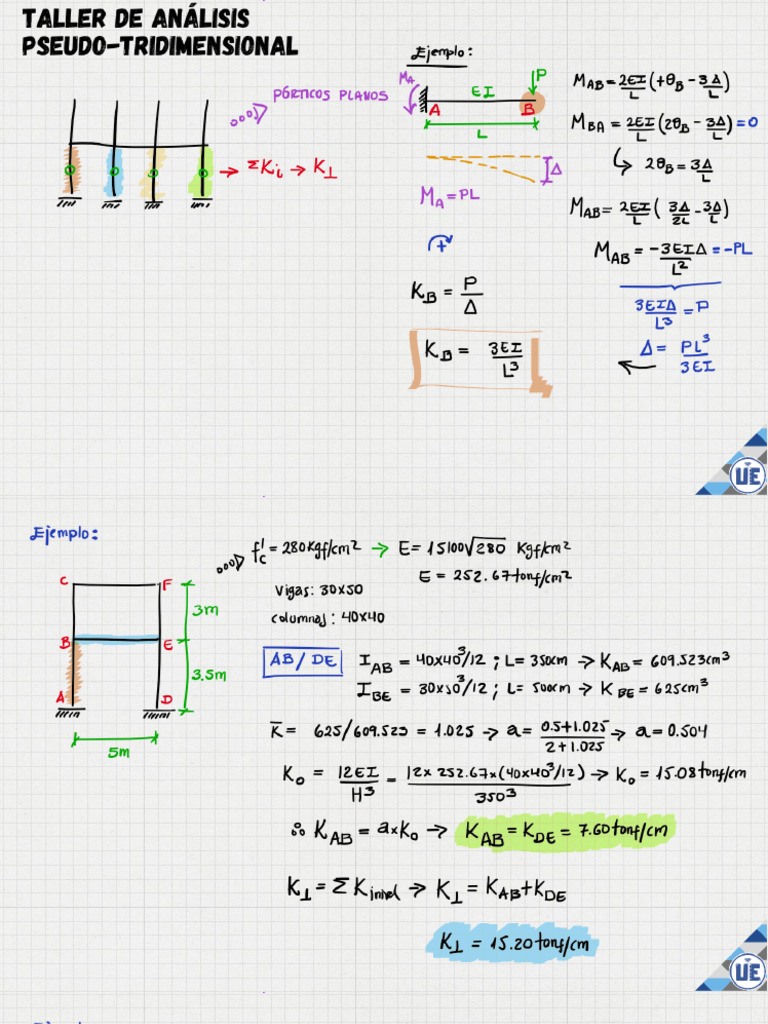 TALLER DE ANÁLISIS
PSEUDO-TRIDIMENSIONAL
PÓRTICOS PLANOS
ΣKi → K⊥
Ejemplo:
MA
EI
P
A
B
L
Δ
MA = PL
+
KB = P/Δ
KB = 3EI/L³
MAB = 2EI/L (+θB - 3Δ/L)
MBA = 2EI/L (2θB - 3Δ/L) = 0
2θB = 3Δ/L
MAB = 2EI/L (3Δ/2L - 3Δ/L)
MAB = -3EIΔ/L² = -PL
3EIΔ/L³ = P
Δ = PL³/3EI
UE
Ejemplo:
f'c = 280Kgf/cm² → E = 15100√280 Kgf/cm²
E = 252.67tonf/cm²
Vigas: 30x50
columnas: 40x40
C
F
3m
B
E
3.5m
A
D
5m
AB/DE
IAB = 40x40³/12 ; L = 350cm → KAB = 609.523cm³
IBE = 30x50³/12 ; L = 500cm → KBE = 625cm³
K̅ = 625/609.523 = 1.025 → a = 0.5+1.025/2+1.025 → a = 0.504
Ko = 12EI/H³ = 12x252.67x(40x40³/12)/350³ → Ko = 15.08tonf/cm
∴ KAB = a*Ko → KAB = KDE = 7.60tonf/cm
K⊥ = ΣKinivel → K⊥ = KAB + KDE
K⊥ = 15.20tonf/cm
UE